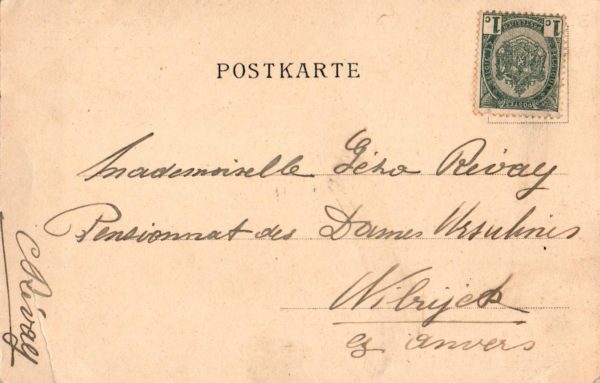 POSTKARTE
1 c 1 c
POSTES
Mademoiselle Géza Révay
Pensionnat des Dames Ursulines
Wilryck
ez Anvers
Révay